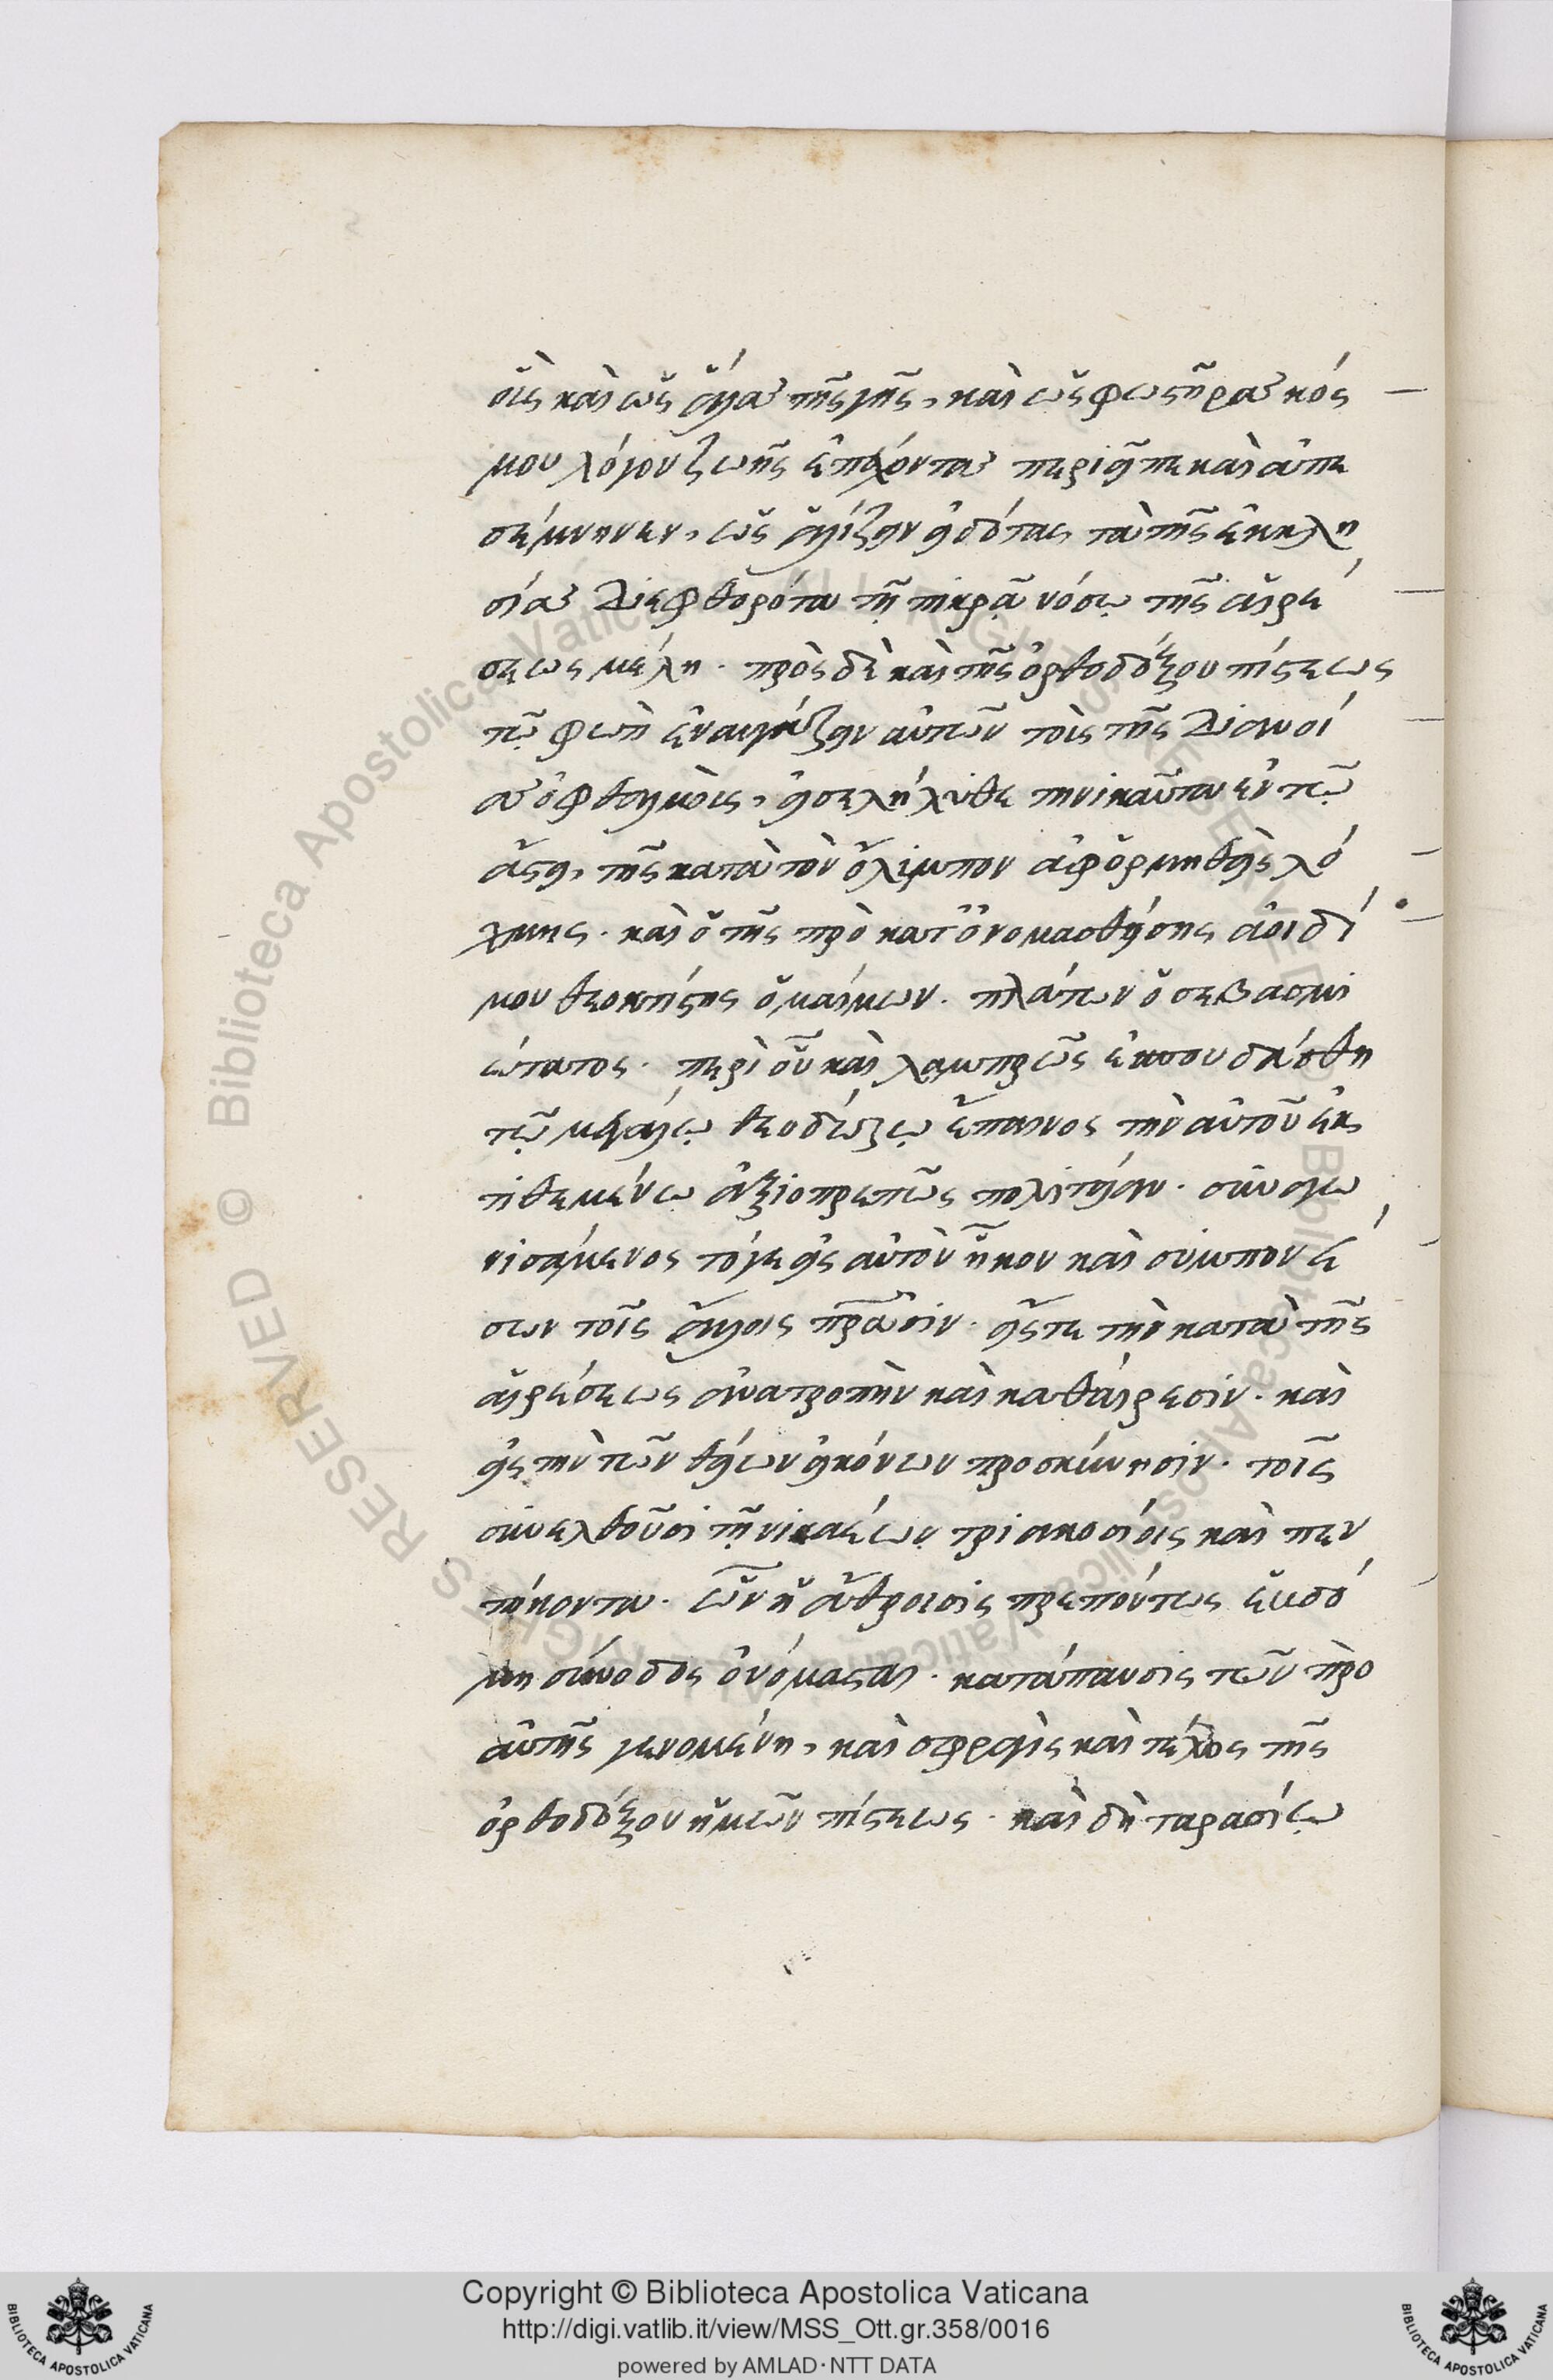 οὓς καὶ ὡς ἅλας τῆς γῆς, καὶ ὡς φωστῆρας κόσ
μου λόγον ζωῆς ἐπέχοντας περιεῖπε καὶ ἀπε
σέμνυνεν, ὡς ἁλίζειν εἰδότας τὰ τῆς ἐκκλη
σίας διεφθορότα τῇ πικρᾷ νόσῳ τῆς αἱρέ
σεως μέλη. πρὸς δὲ καὶ τῆς ὀρθοδόξου πίστεως
τῷ φωτὶ ἐναυγάζειν αὐτῶν τοῖς τῆς διανοί
ας ὀφθαλμοῖς, εἰσελήλυθε τηνικαῦτα ἐν τῷ
ἄστει, τῆς κατὰ τὸν ὄλυμπον ἀφορμηθεὶς λό
χμης. καὶ ὁ τῆς προκατονομασθείσης ἀοιδί
μου θεοκτίστης ὁμαίμων. πλάτων ὁ σεβασμι
ώτατος. περὶ οὗ καὶ λαμπρῶς ἐσπουδάσθη
τῷ μεγάλῳ θεοδώρῳ ἔπαινος τὴν αὐτοῦ ἐκ
τιθεμένῳ ἀξιοπρεπῶς πολιτείαν. συναγω
νισάμενος τόγε εἰς αὐτὸν ἧκον καὶ συμπονέ
σων τοῖς ἁγίοις πράσιν. εἴς τε τὴν κατὰ τῆς
αἱρέσεως ἀνατροπὴν καὶ καθαίρεσιν. καὶ
εἰς τὴν τῶν θείων εἰκόνων προσκύνησιν. τοῖς
συνελθοῦσι τῇ νικαέων τριακοσίοις καὶ πεν
τήκοντα. ὧν ἡ ἄθροισις πρεπόντως ἑβδό
μη σύνοδος ὀνόμασται. κατάπαυσις τῶν πρὸ
αὐτῆς γενομένη, καὶ σφραγὶς καὶ τέλος τῆς
ὀρθοδόξου ἡμῶν πίστεως. καὶ δὴ ταρασίῳ
Copyright © Biblioteca Apostolica Vaticana
http://digi.vatlib.it/view/MSS_Ott.gr.358/0016
powered by AMLAD·NTT DATA